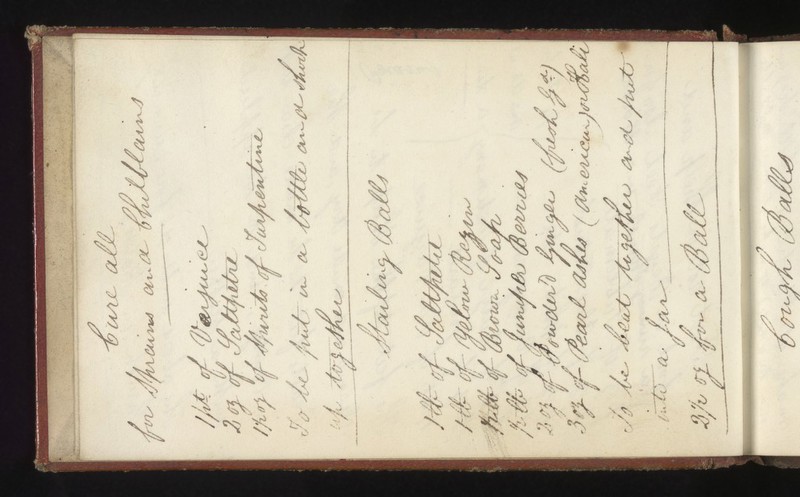 Cure all
for Sprains and Chilblains
1 pt of Verjuice
2 oz of Saltpetre
1½ oz of Spirits of Turpentine
To be put in a bottle and shook
up together
Stailing Balls
1 lb of Saltpetre
1 lb of Yelow Rezin
½ lb of Brown Soap
½ lb of Juniper Berries
2 oz of Powder'd Ginger (fresh
3 oz of Pearl Ashes (American) or Kali
To be beat together and put
into a Jar
2½ oz for a Ball
Cough Balls